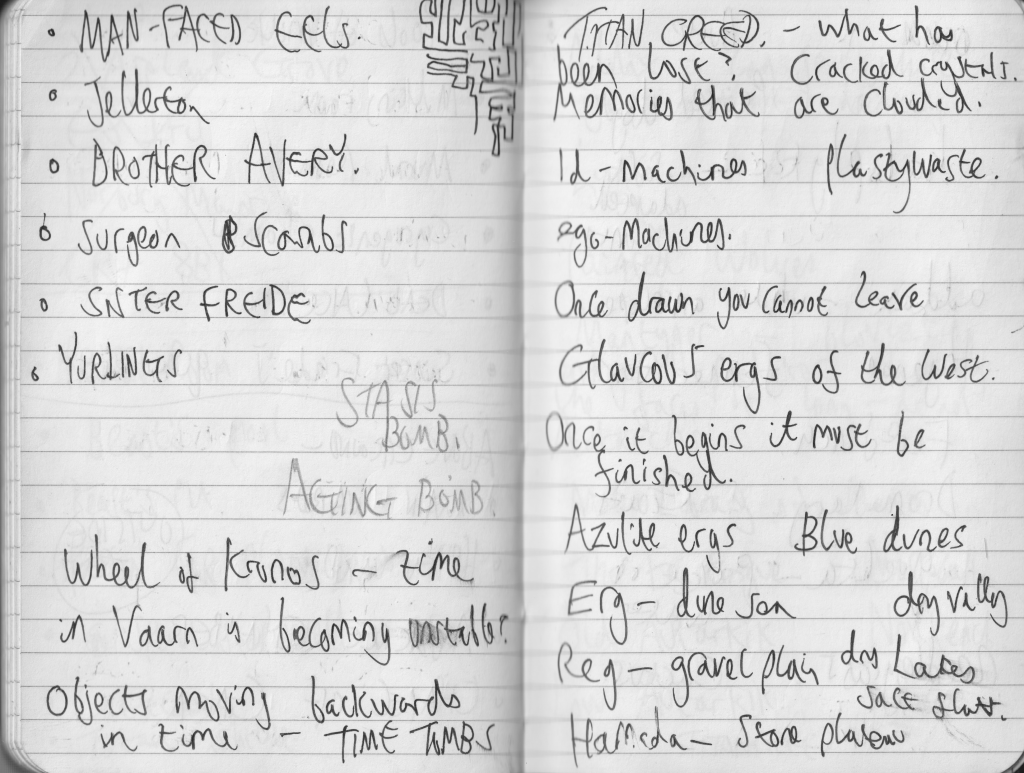 • MAN-FACED EELS
• Jellerton
• BROTHER AVERY.
• Surgeon Scarabs
• SNTER FREIDE
• YURLINGS
STASIS
BOMB.
AGING BOMB.
Wheel of Kronos – time
in Vaarn is becoming unstable?
Objects moving backwards
in time – TIME TOMBS
TITAN CREED. – what has
been lost? Cracked crystals.
Memories that are clouded.
Id-machines plastywaste.
ego-Machines.
Once drawn you cannot leave
Glaucous ergs of the West.
Once it begins it must be
finished.
Azulite ergs Blue dunes
Erg – dune sea dry vally
Reg – gravel plain dry Lakes
salt flats.
Hamada – Stone plateau